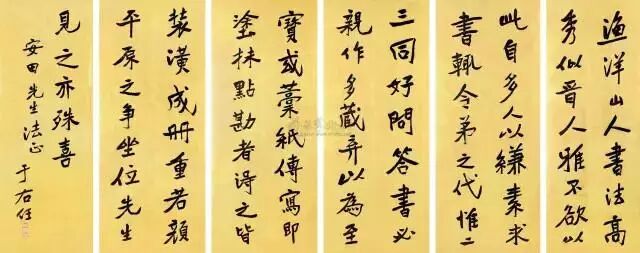 漁洋山人書法高
秀似晉人雅不欲以
此自多人以縑素求
書輒令弟之代惟二
三同好問答書必
親作多藏弆以為至
寶或藁紙傳寫即
塗抹點勘者得之皆
裝潢成冊重若顏
平原之爭坐位先生
見之亦殊喜
安田先生法正
于右任